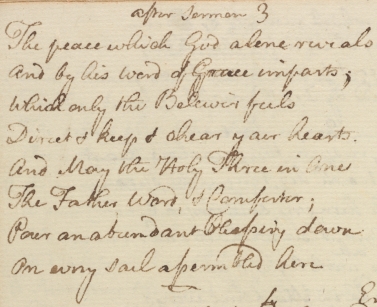 after Sermon 3
The peace which God alone reveals
And by his word of Grace imparts;
Which only the Belever feels
Direct & keep & chear your hearts.
And May the Holy Three in One
The Father, Word, & Comforter;
Pour an abundant Blessing down
On every soul assembled here